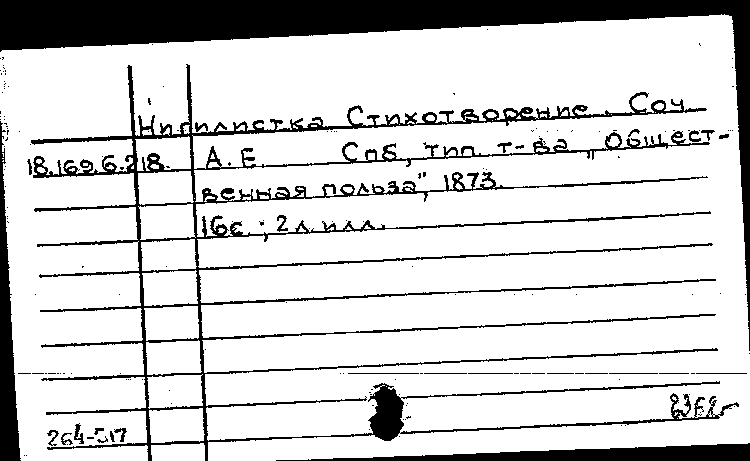 Нигилистка Стихотворение. Соч.
18.169.6.218. А. Е. Спб, тип. т-ва „Общест-
венная польза", 1873.
16с.; 2 л. илл.
264-517